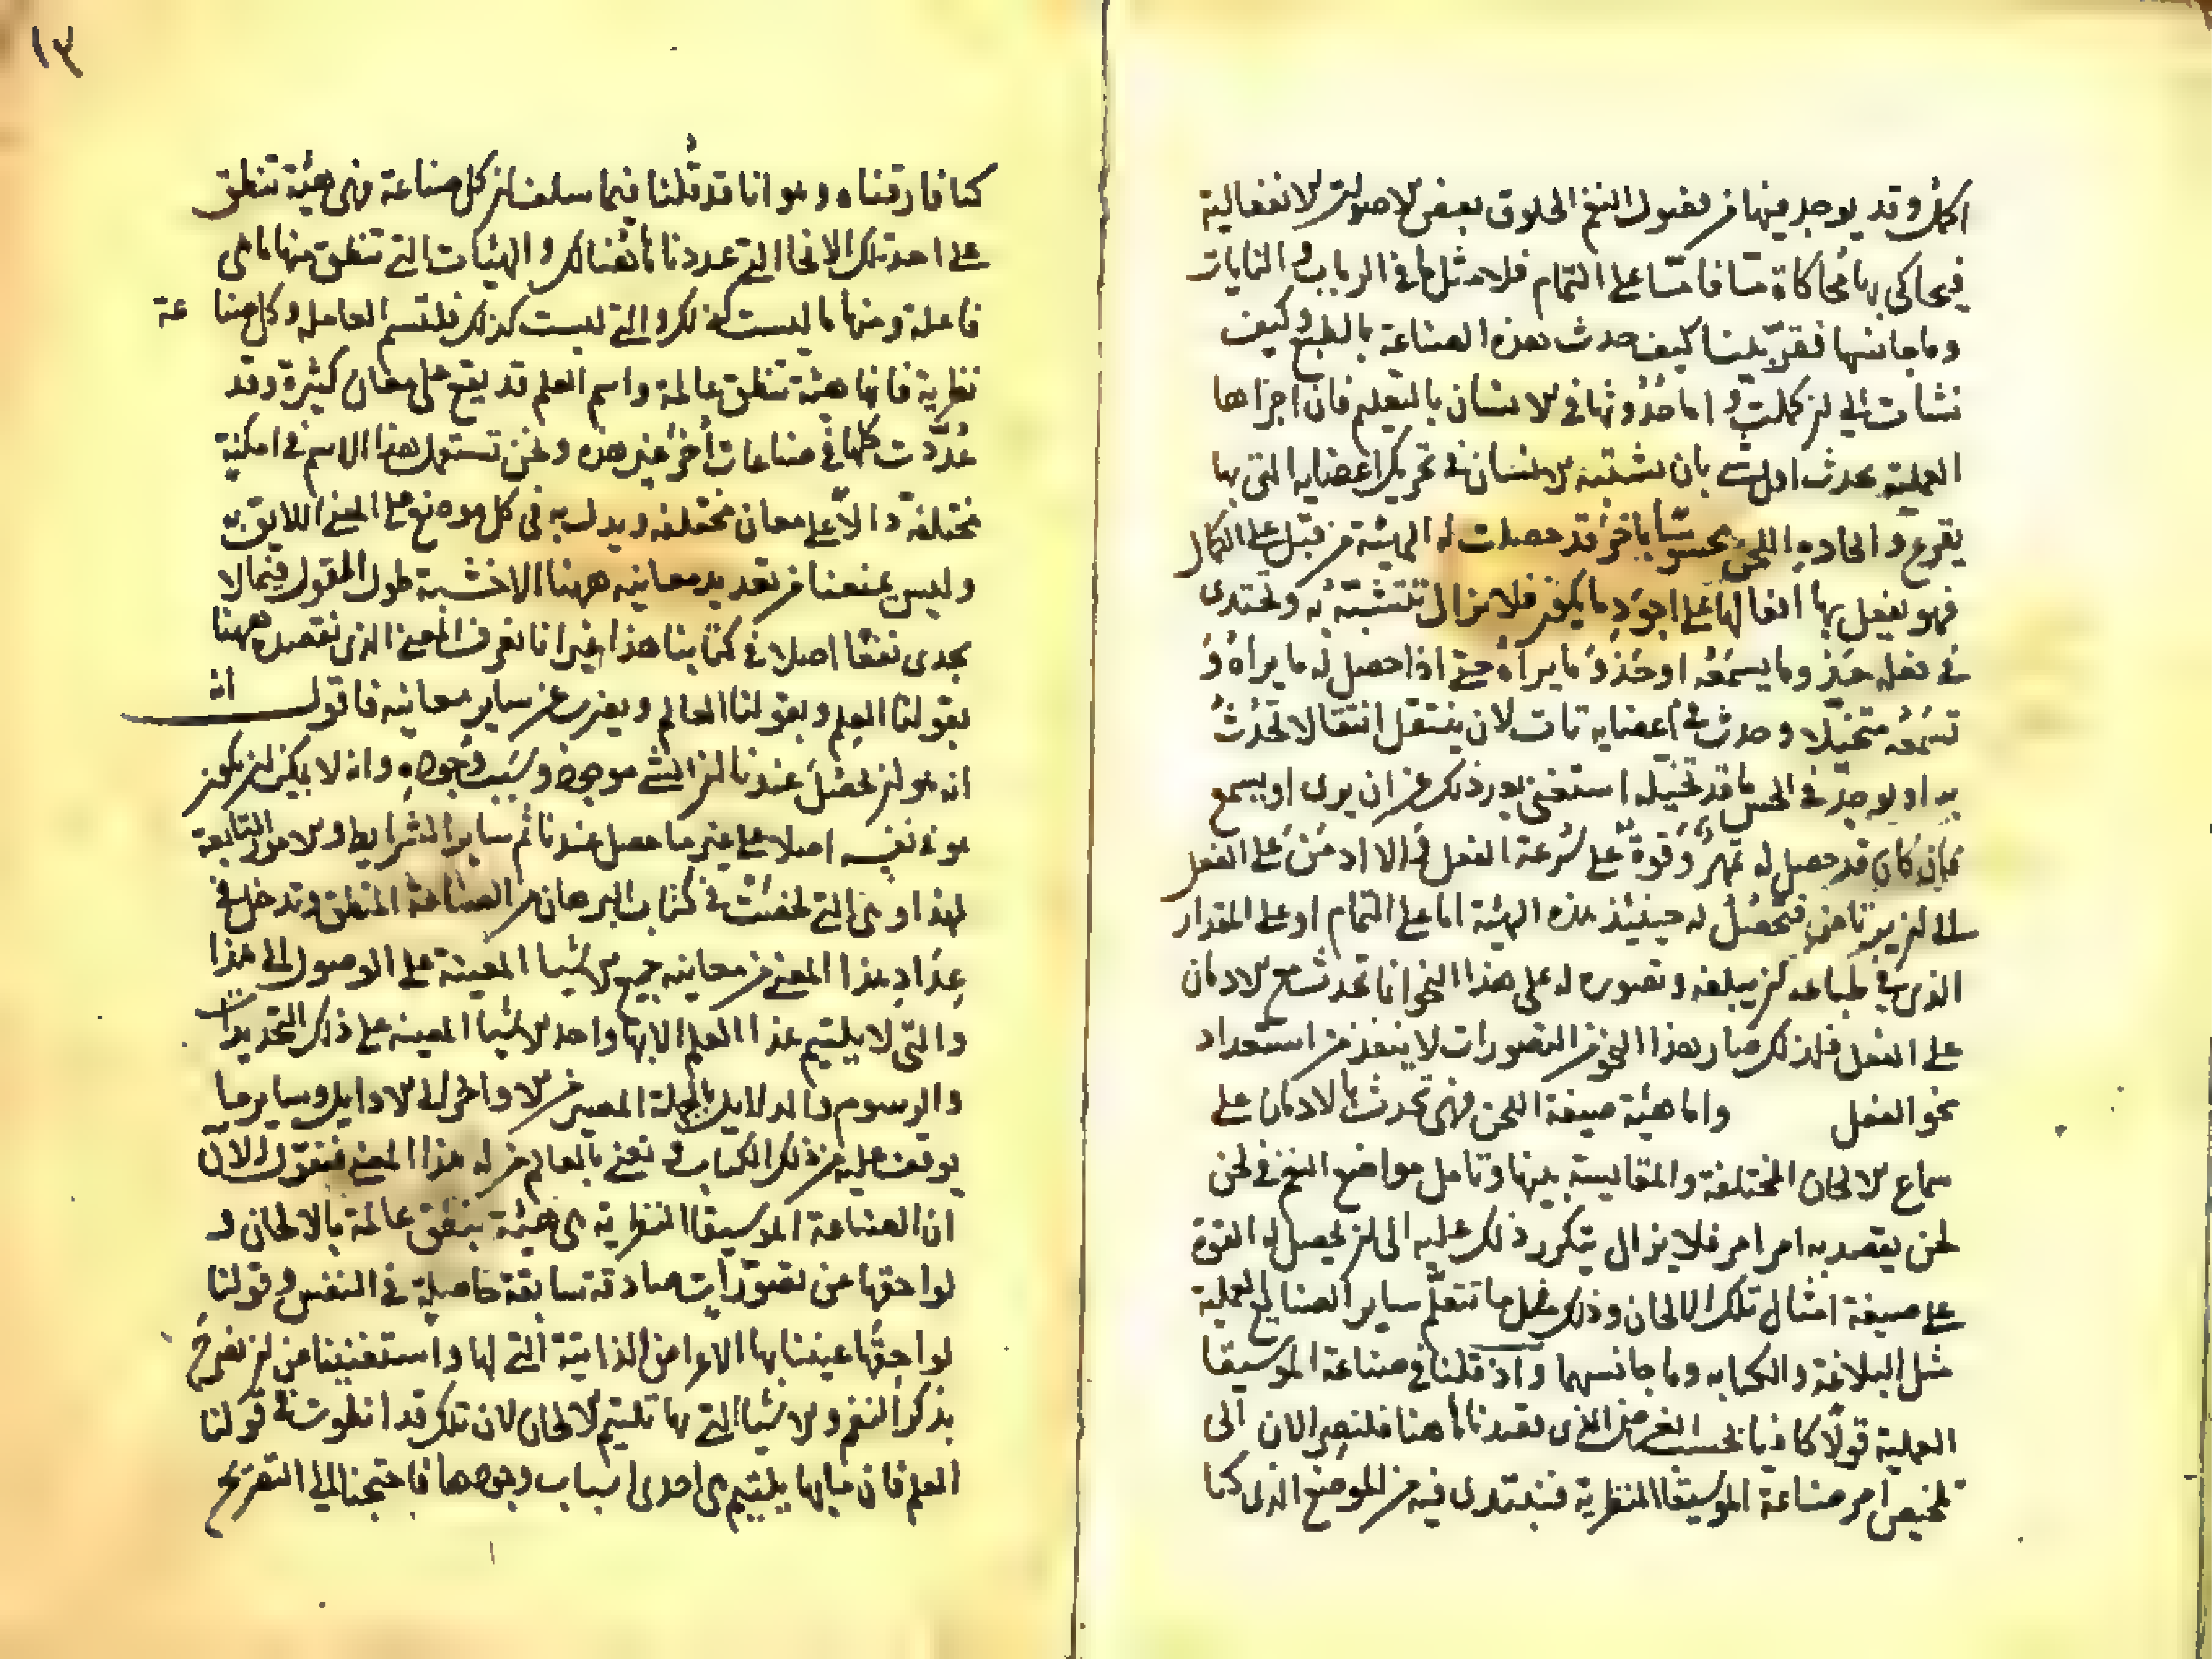 اكمل وقد يوجد فيها من نغم الحلوق بعض الاصوات الانفعالية
فيحاكى بها محاكاة ما على التمام فلا مثل ما فى الرباب والنايات
وما جانسها فقد تبين كيف حدث هذه الصناعة بالطبع وكيف
نشأت الى ان كملت واما حدوثها فى الانسان بالتعليم فان اجزاها
العملية تحدث اول شى بان يتشبه الانسان فى تحريك اعضايه التى بها
يقرع والحاده اللحن بآخر قد حصلت له الهيئة من قبل على الكمال
فهو يفعل بها افعالها على اجود ما يكون فلا يزال يتشبه به ويحتذى
فى فعله حذو ما يسمعه او حذو ما يراه حتى اذا حصل له ما يراه و
تسمعه متخيلا وحدث فى اعضايه تات لان ينتقل انتقالا تحدث
به او يوجد فى الحس ما قد تخيله استغنى بعد ذلك عن ان يرى او يسمع
فان كان قد حصل له تمهر وقوة على سرعة الفعل والا ادمن على الفعل
الى ان يرتاض فتحصل له حينئذ هذه الهيئة اما على التمام او على المقدار
الذى فى طباعه ان يبلغه وتصوره له على هذا النحو انما تحدث مع الادمان
على الفعل فلذلك صار هذا النحو من التصورات لا ينفذ من استعداد
نحو الفعل واما هيئة صيغة اللحن فهى تحدث بالادمان على
سماع الالحان المختلفة والمقايسة بينها وتامل مواضع النغم فى لحن
لحن يقصد به امر امر فلا يزال يتكرر ذلك عليه الى ان يحصل له القوة
على صيغة امثال تلك الالحان وذلك مثل ما تتعلم ساير الصنايع العملية
مثل البلاغة والكتابه وما جانسهما واذ قلنا فى صناعة الموسيقا
العملية قولا كافيا بحسب الغرض الذى يقيدنا هاهنا فلنصر الان الى
تلخيص امر صناعة الموسيقا النظرية فنبتدى فيه من الموضع الذى كنا
١٣
كنا فارقناه وهو انا قد قلنا فيما سلف ان كل صناعة فهى هيئة تنطق
على احد تلك الانحا التى عددناها هنالك والهيئات التى تنطق منها ما هى
فاعلة ومنها ما ليست كذلك والتى ليست كذلك فلتسم العالمه وكل صناعة
نظرية فانها هيئة تنطق عالمة واسم العلم قد يقع على معان كثيرة وقد
عددت كلها فى صناعات أخر غير هذه ونحن نستعمل هذا الاسم فى امكنة
مختلفة دالا على معان مختلفه ويدل به فى كل موضع على المعنى اللايق به
وليس يمنعنا من تعديد معانيه ههنا الا خشية طول القول فيما لا
يجدى نفعا اصلا فى كتابنا هذا غير انا نعرف المعنى الذى نقصده ههنا
بقولنا العلم وبقولنا العالم ويعزب عن ساير معانيه فاقول ان
انه هو ان تحصل عندنا ان الشى موجود وسبب وجوده وانه لا يمكن ان يكون
هو فى نفسه اصلا على غير ما حصل عندنا ثم ساير الشرايط والامور التابعة
لهذا وهى التى لخصت فى كتاب البرهان من الصناعة المنطق وتدخل فى
عداد هذا المعنى من معانيه جميع الاشيا المعينة على الوصول الى هذا
والتى لا يلتيم هذا العلم الا بها واحد الاشيا المعينه على ذلك التحديدات
والرسوم والدلايل بالجملة المصير من الاواخر الى الاوايل وساير ما
يوقف عليه من ذلك الكتاب ونعنى بالعالم من له هذا المعنى فنقول الان
ان الصناعة الموسيقا النظرية هى هيئة تنطق عالمة بالالحان و
لواحقها عن تصورات صادقة سابقة حاصلة فى النفس وقولنا
لواحقها عنينا بها الاعراض الذاتية التى لها واستغنينا عن ان نصرح
بذكر النغم والاشيا التى بها تلتيم الالحان لان تلك قد انطوت فى قولنا
العلم فان ما بها يلتيم هى احدى اسباب وجودها فاحتجنا الى التصريح